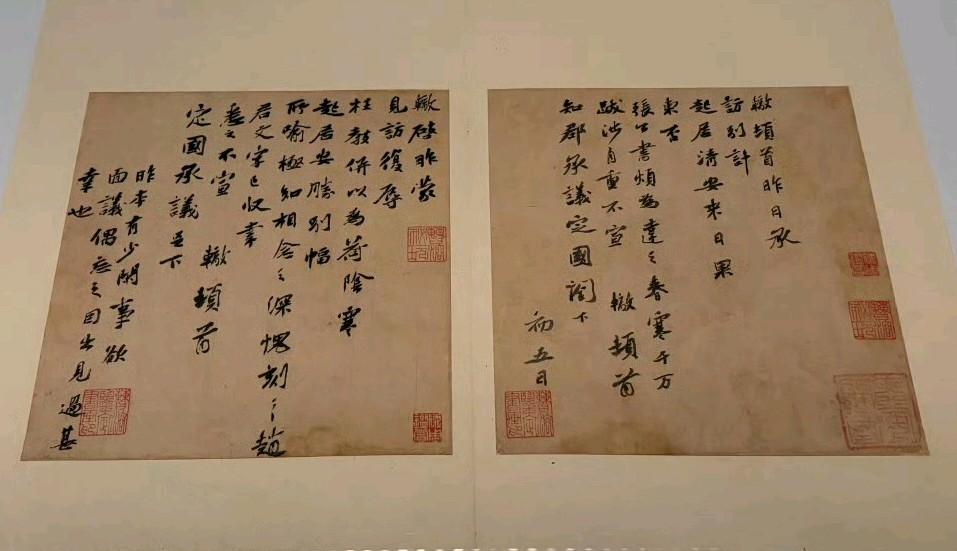 轍頓首昨日承
訪別計
起居清安來日果
東否
張公書煩為達之春寒千万
跋涉自重不宣 轍頓首
知郡承議定國閣下
初五日
轍啓昨蒙
見訪復辱
枉教併以為荷陰寒
起居安勝別幅
所喻極知相念之深愧刻〻趙
君文字已收幸
悉之不宣 轍頓首
定國承議 下
昨本有少閑事欲
面議偶忘之因出見過甚
幸也